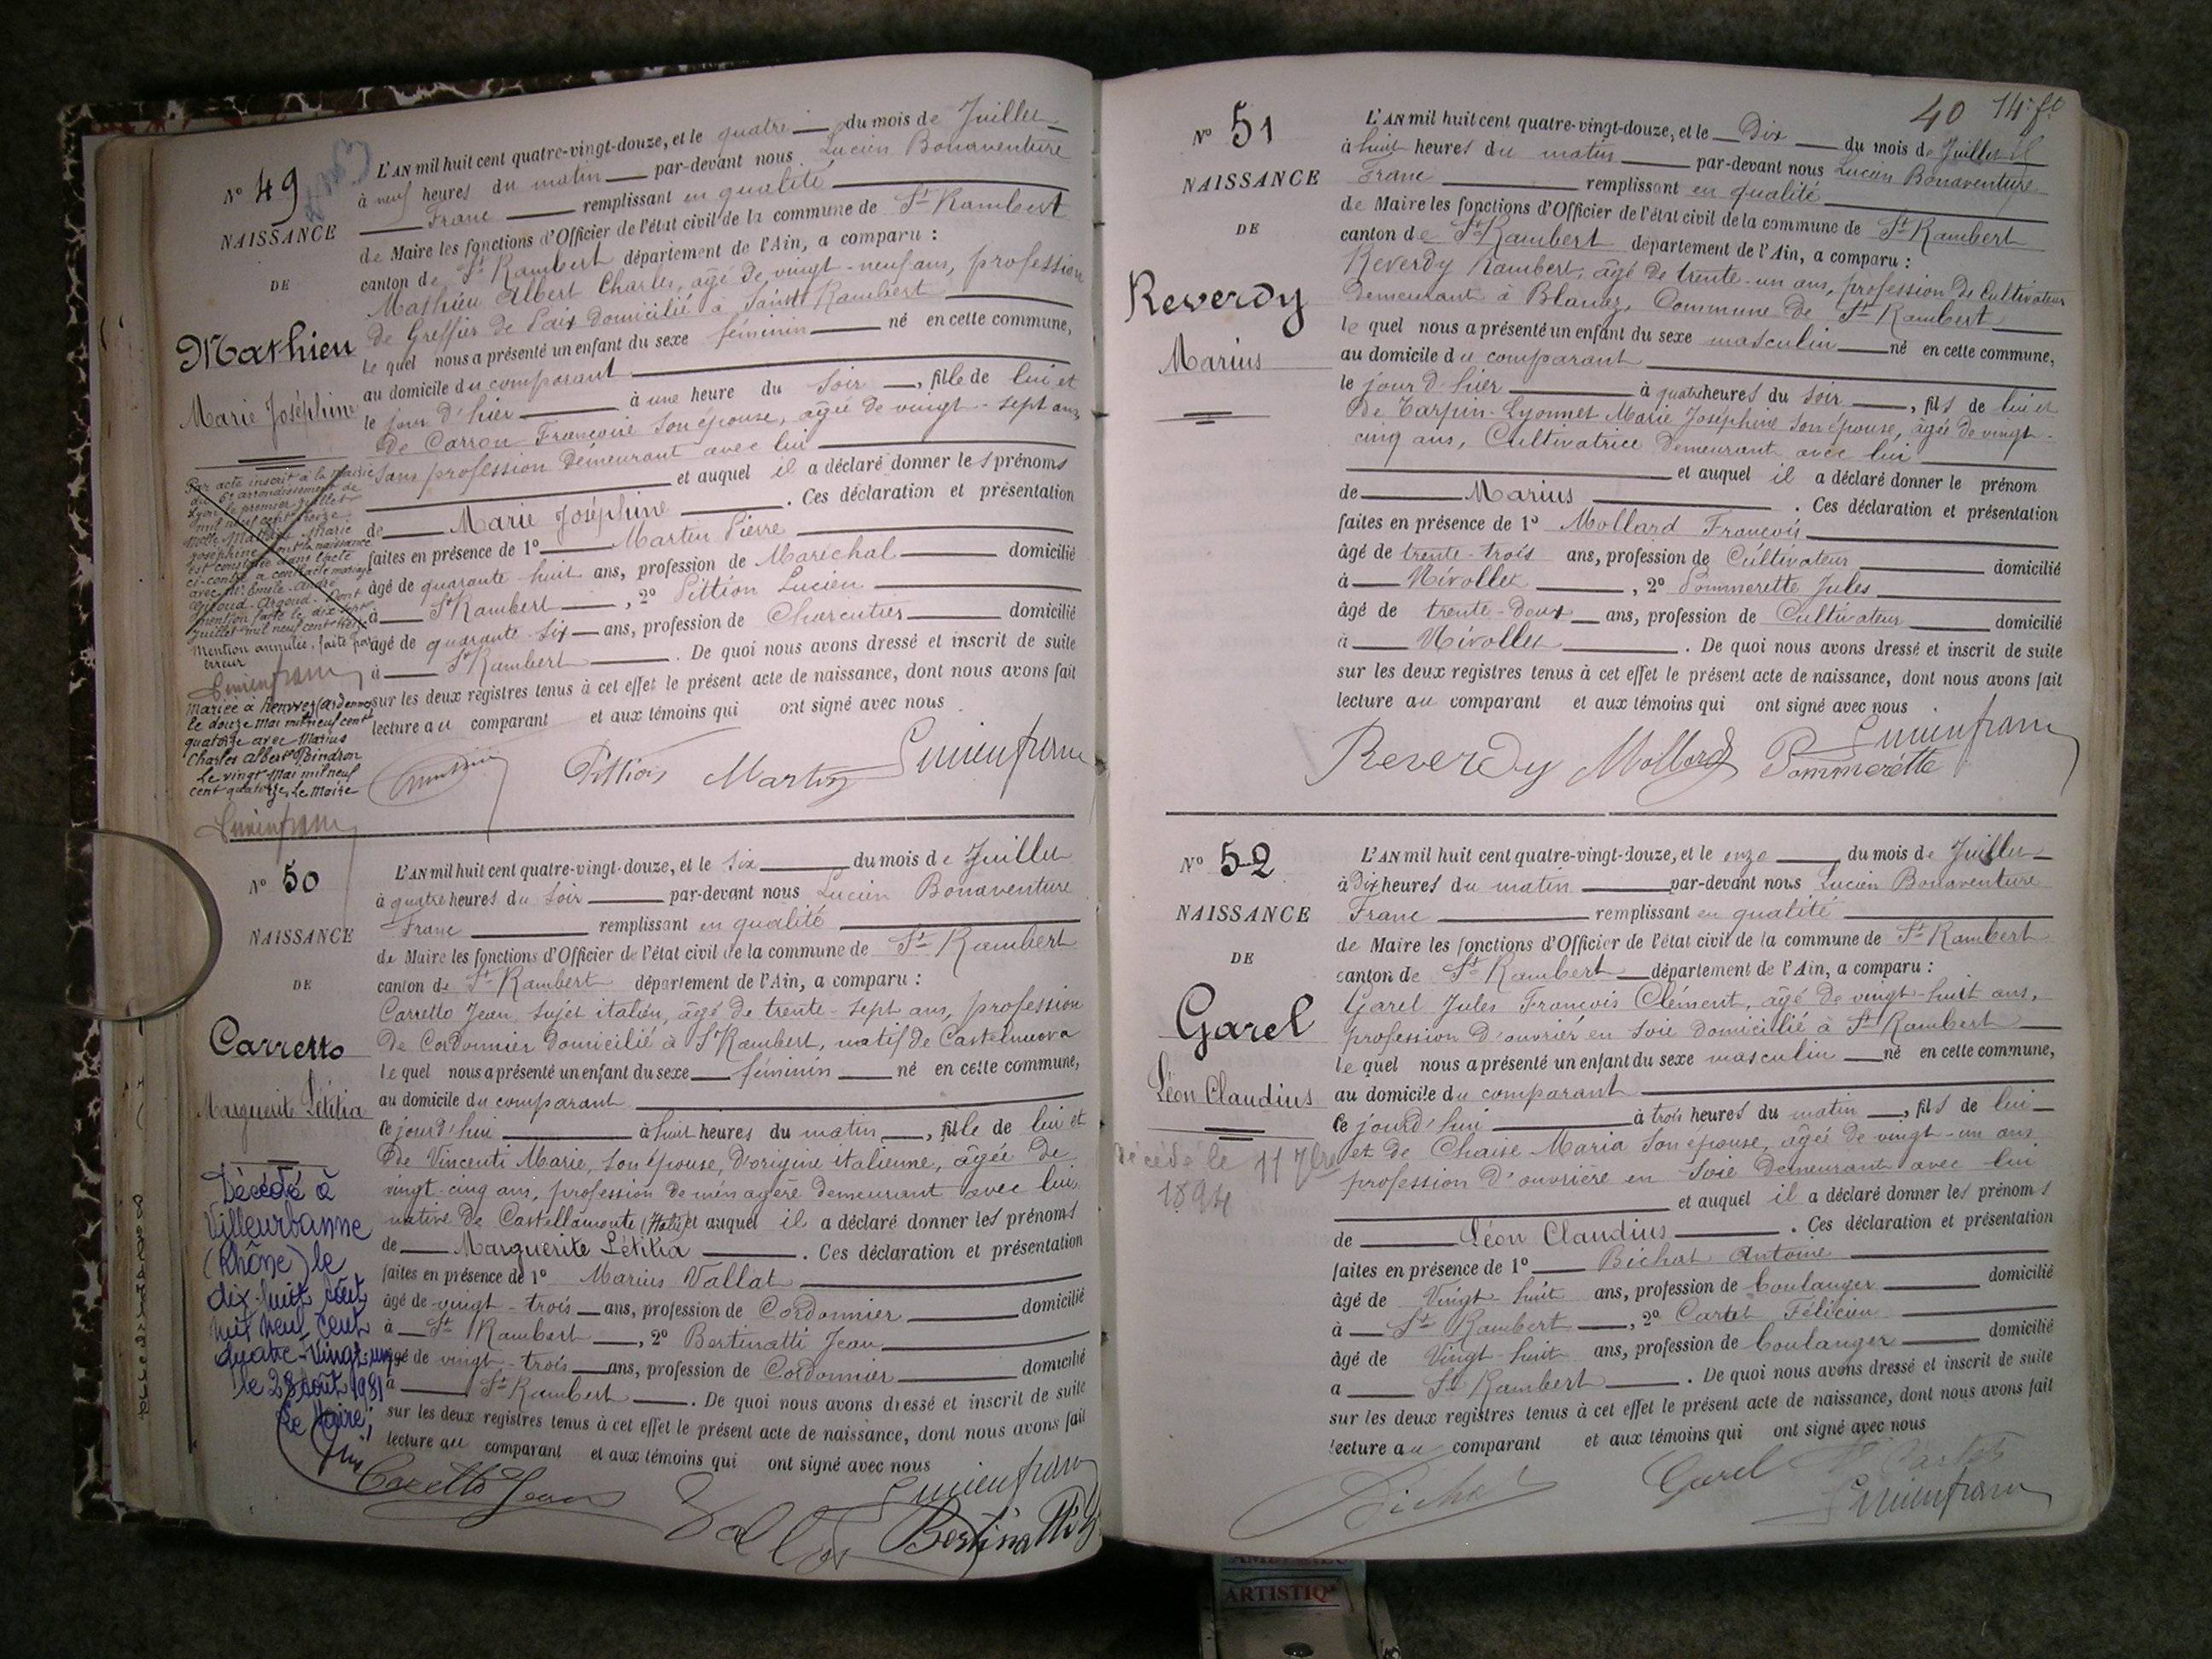 N° 49
NAISSANCE
DE
Mathieu
Marie Joséphine
L'AN mil huit cent quatre-vingt-douze, et le quatre du mois de Juillet
à neuf heures du matin par-devant nous Lucien Bonaventure
Franc remplissant en qualité
de Maire les fonctions d'Officier de l'état civil de la commune de St Rambert
canton de St Rambert département de l'Ain, a comparu :
Mathieu Albert Charles, âgé de vingt-neuf ans, profession
de Greffier de Paix domicilié à Saint Rambert
le quel nous a présenté un enfant du sexe féminin né en cette commune,
au domicile du comparant
le jour d'hier à une heure du soir, fille de lui et
de Carron Françoise son épouse, âgée de vingt-sept ans,
sans profession demeurant avec lui
et auquel il a déclaré donner les prénoms
de Marie Joséphine. Ces déclaration et présentation
faites en présence de 1° Martin Pierre
âgé de quarante huit ans, profession de Maréchal domicilié
à St Rambert, 2° Pittion Lucien
âgé de quarante-six ans, profession de Charcutier domicilié
à St Rambert. De quoi nous avons dressé et inscrit de suite
sur les deux registres tenus à cet effet le présent acte de naissance, dont nous avons fait
lecture au comparant et aux témoins qui ont signé avec nous
Pittion Martin Lucien franc
Par acte inscrit à la mairie
du 6e arrondissement de
Lyon le premier juillet
mil neuf cent treize
Melle Mathieu Marie
Joséphine dont la naissance
est constatée dans l'acte
ci-contre a contracté mariage
avec Mr Emile-André
Argoud. Dont
mention faite le dix sept
Juillet mil neuf cent treize
Mention annulée, faite par
erreur
Lucien franc
Mariée à (Ardennes)
le douze Mai mil neuf cent
quatorze avec Marius
Charles Albert Poindron
Le vingt Mai mil neuf
cent quatorze, Le Maire
Lucien franc
N° 50
NAISSANCE
DE
Carretto
Marguerite Létitia
L'AN mil huit cent quatre-vingt-douze, et le six du mois de Juillet
à quatre heures du soir par-devant nous Lucien Bonaventure
Franc remplissant en qualité
de Maire les fonctions d'Officier de l'état civil de la commune de St Rambert
canton de St Rambert département de l'Ain, a comparu :
Carretto Jean, sujet italien, âgé de trente-sept ans, profession
de Cordonnier domicilié à St Rambert, natif de Castelnuova
le quel nous a présenté un enfant du sexe féminin né en cette commune,
au domicile du comparant
ce jourd'hui à huit heures du matin, fille de lui et
de Vincenti Marie, son épouse, d'origine italienne, âgée de
vingt-cinq ans, profession de ménagère demeurant avec lui
native de Castellamonte (Italie) et auquel il a déclaré donner les prénoms
de Marguerite Létitia. Ces déclaration et présentation
faites en présence de 1° Marius Vallat
âgé de vingt-trois ans, profession de Cordonnier domicilié
à St Rambert, 2° Bertinatti Jean
âgé de vingt-trois ans, profession de Cordonnier domicilié
à St Rambert. De quoi nous avons dressé et inscrit de suite
sur les deux registres tenus à cet effet le présent acte de naissance, dont nous avons fait
lecture au comparant et aux témoins qui ont signé avec nous
Caretto Jean Vallat Lucien franc
Bertinatti
Décédé à
Villeurbanne
(Rhône) le
dix-huit août
mil neuf cent
quatre-vingt-un
le 28 août 1981
Le Maire,
40 14e ft
N° 51
NAISSANCE
DE
Reverdy
Marius
L'AN mil huit cent quatre-vingt-douze, et le Dix du mois de Juillet
à huit heures du matin par-devant nous Lucien Bonaventure
Franc remplissant en qualité
de Maire les fonctions d'Officier de l'état civil de la commune de St Rambert
canton de St Rambert département de l'Ain, a comparu :
Reverdy Rambert, âgé de trente-un ans, profession de Cultivateur
demeurant à Blanaz, Commune de St Rambert
le quel nous a présenté un enfant du sexe masculin né en cette commune,
au domicile du comparant
le jour d'hier à quatre heures du soir, fils de lui et
de Tarpin-Lyonnet Marie Joséphine son épouse, âgée de vingt-
cinq ans, Cultivatrice demeurant avec lui
et auquel il a déclaré donner le prénom
de Marius. Ces déclaration et présentation
faites en présence de 1° Mollard François
âgé de trente-trois ans, profession de Cultivateur domicilié
à Nivollet, 2° Pommerette Jules
âgé de trente-deux ans, profession de Cultivateur domicilié
à Nivollet. De quoi nous avons dressé et inscrit de suite
sur les deux registres tenus à cet effet le présent acte de naissance, dont nous avons fait
lecture au comparant et aux témoins qui ont signé avec nous
Reverdy Mollard Pommerette Lucien franc
N° 52
NAISSANCE
DE
Garel
Léon Claudius
décédé le 11 7bre
1894
L'AN mil huit cent quatre-vingt-douze, et le onze du mois de Juillet
à Dix heures du matin par-devant nous Lucien Bonaventure
Franc remplissant en qualité
de Maire les fonctions d'Officier de l'état civil de la commune de St Rambert
canton de St Rambert département de l'Ain, a comparu :
Garel Jules François Clément, âgé de vingt-huit ans,
profession d'ouvrier en soie domicilié à St Rambert
le quel nous a présenté un enfant du sexe masculin né en cette commune,
au domicile du comparant
ce jourd'hui à trois heures du matin, fils de lui
et de Chaise Maria son épouse, âgée de vingt-un ans
profession d'ouvrière en soie demeurant avec lui
et auquel il a déclaré donner les prénoms
de Léon Claudius. Ces déclaration et présentation
faites en présence de 1° Bichat Antoine
âgé de Vingt-huit ans, profession de boulanger domicilié
à St Rambert, 2° Cartet Félicien
âgé de Vingt-huit ans, profession de boulanger domicilié
à St Rambert. De quoi nous avons dressé et inscrit de suite
sur les deux registres tenus à cet effet le présent acte de naissance, dont nous avons fait
lecture au comparant et aux témoins qui ont signé avec nous
Bichat Garel Cartet
Lucien franc
ARTISTIQ